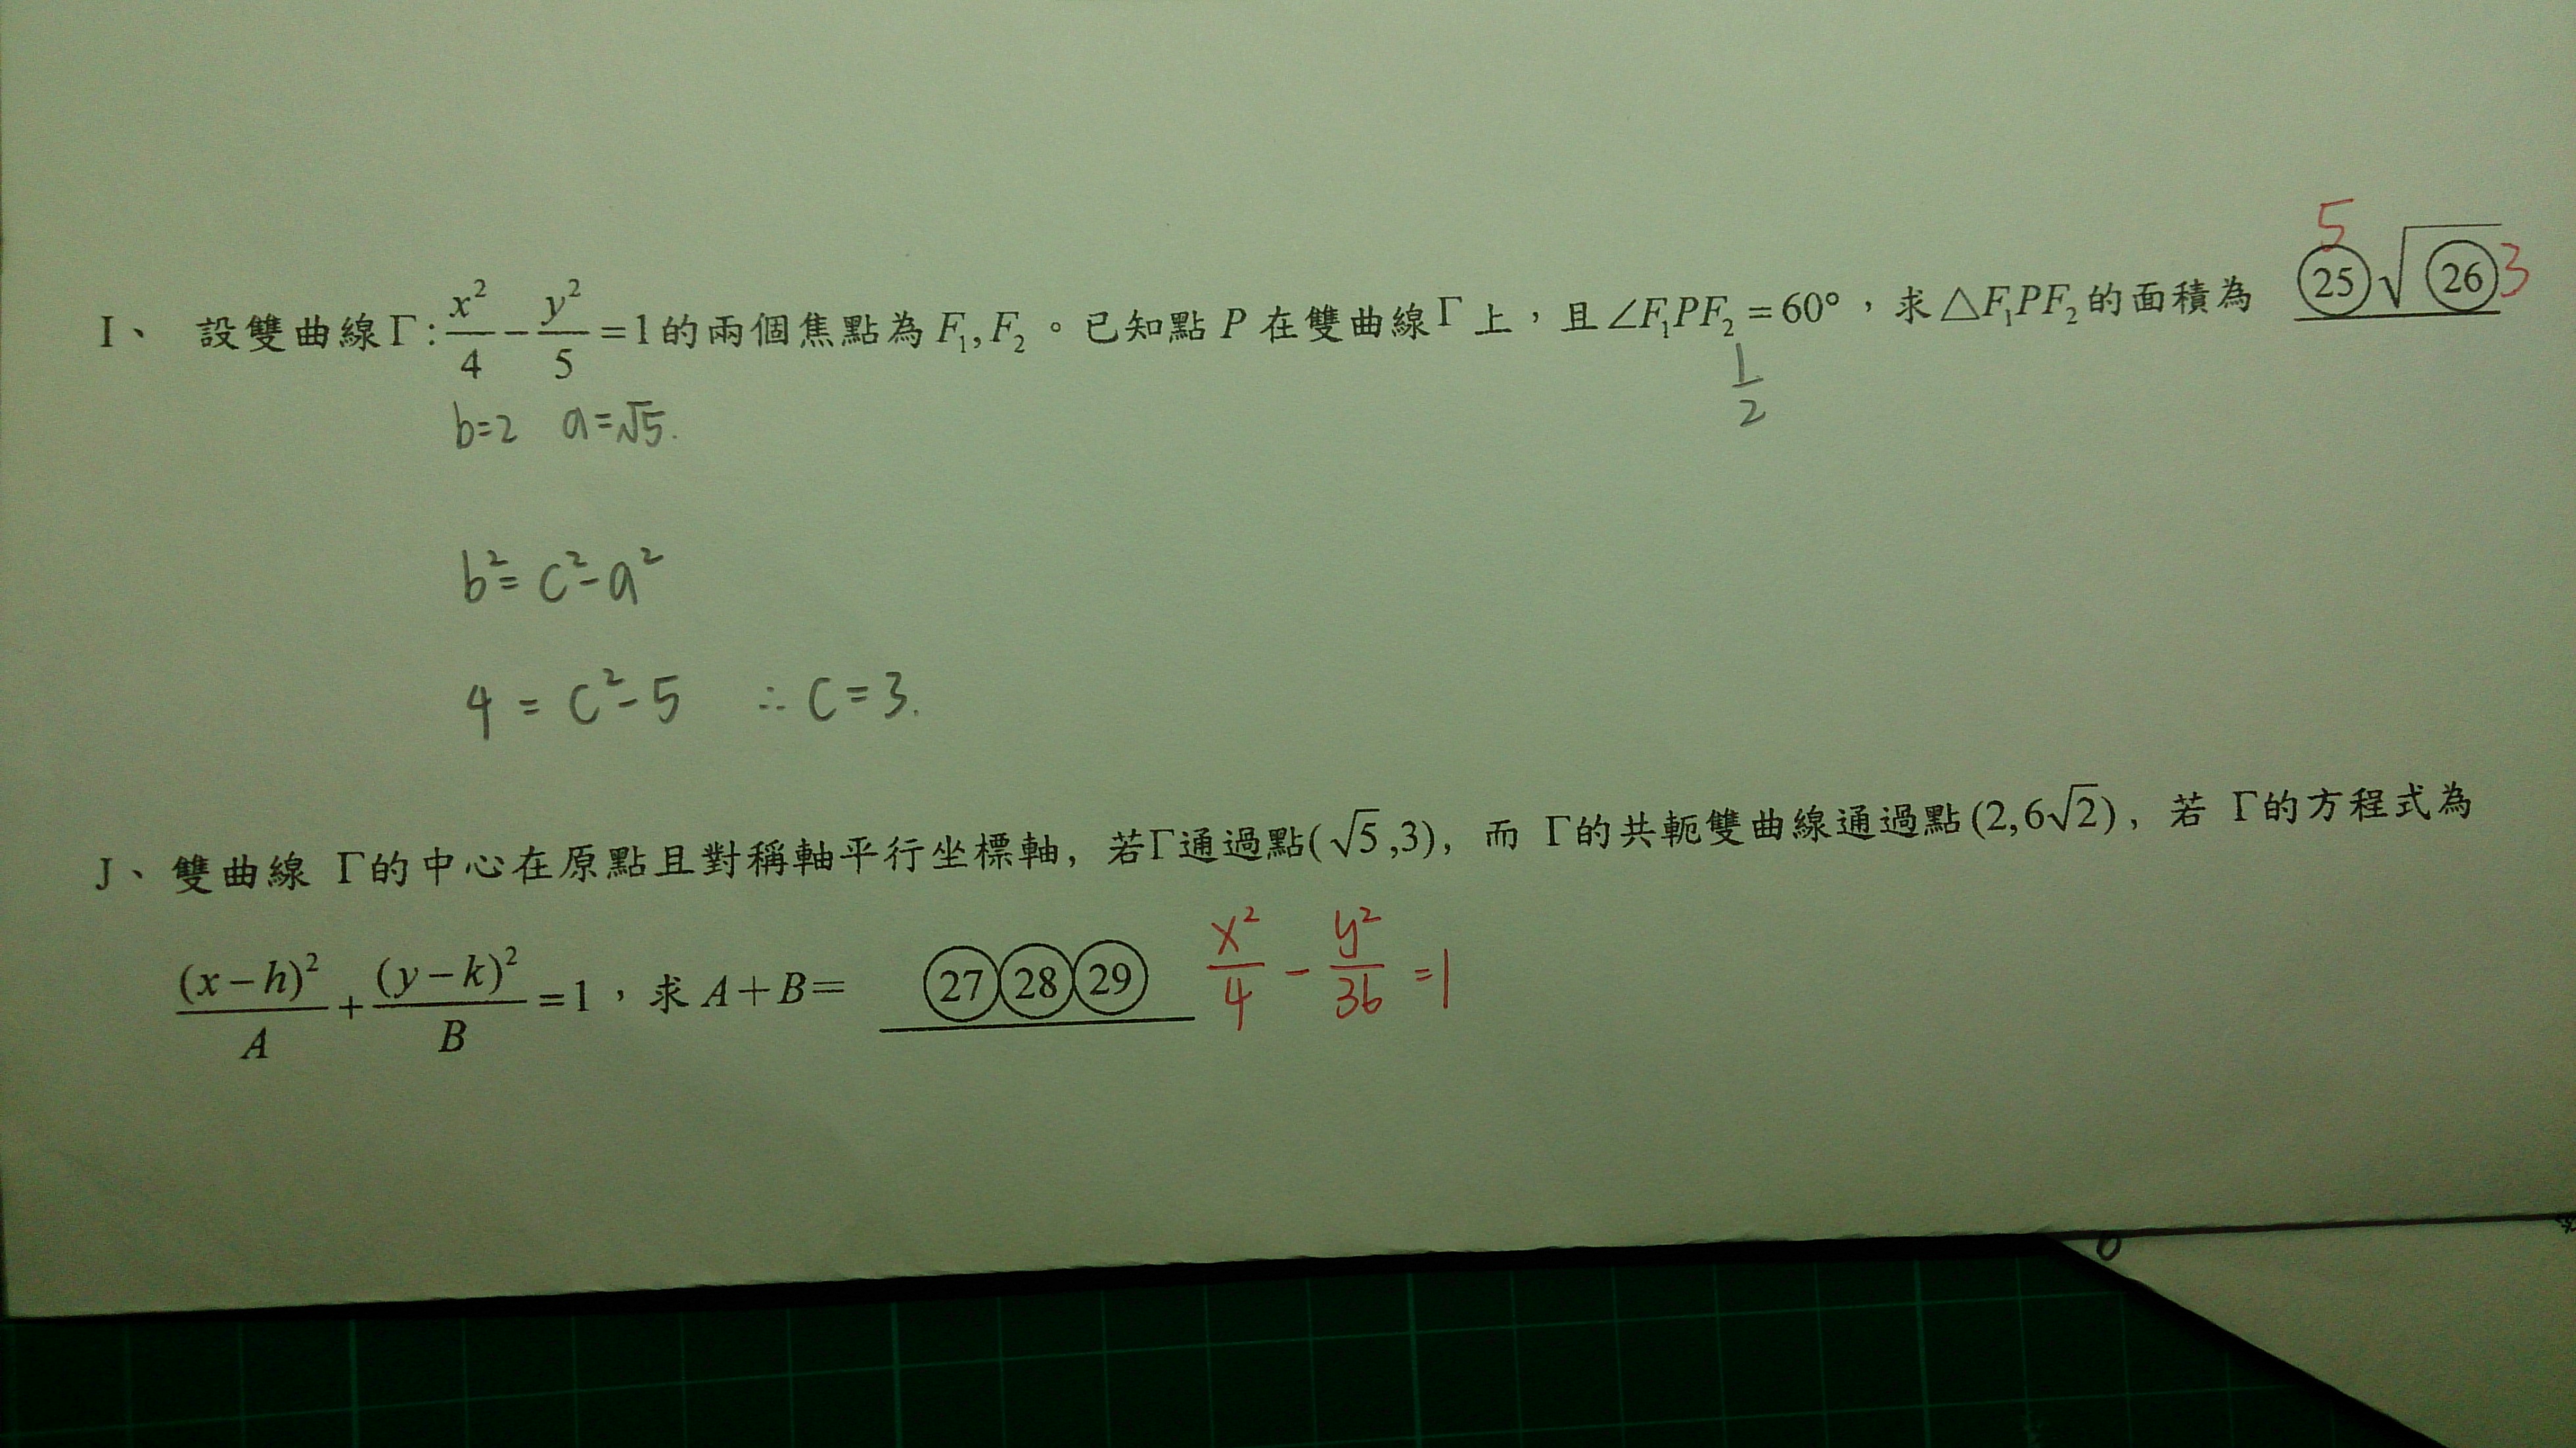 I、 設雙曲線Γ: x²/4 − y²/5 = 1的兩個焦點為F₁,F₂。已知點 P 在雙曲線Γ上，且∠F₁PF₂ = 60°，求△F₁PF₂的面積為 ㉕√㉖
5 3
b=2 a=√5. 1/2
b²= c²-a²
4 = c²-5 ∴ c=3.
J、雙曲線 Γ的中心在原點且對稱軸平行坐標軸, 若Γ通過點(√5,3), 而 Γ的共軛雙曲線通過點(2,6√2), 若 Γ的方程式為
(x−h)²/A + (y−k)²/B = 1，求 A+B= ㉗㉘㉙ x²/4 - y²/36 = 1